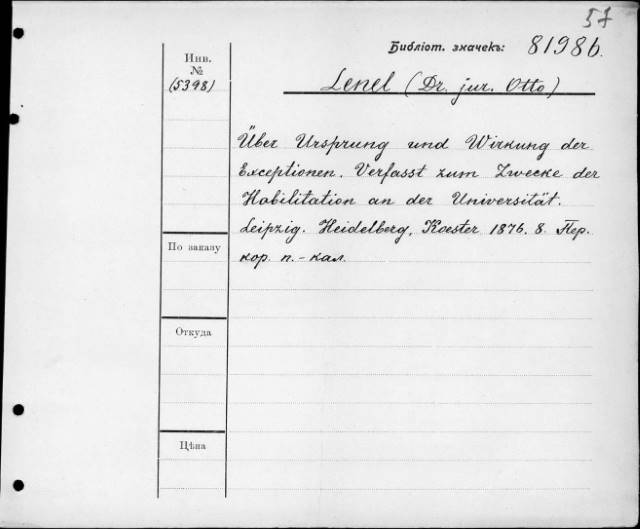 57
Библіот. значекъ: 8198b.
Инв.
№
(5398)
Lenel (Dr. jur. Otto)
Über Ursprung und Wirkung der
Exceptionen. Verfasst zum Zwecke der
Habilitation an der Universität.
Leipzig. Heidelberg, Koester 1876. 8. Пер.
кор. п. - кал.
По заказу
Откуда
Цѣна